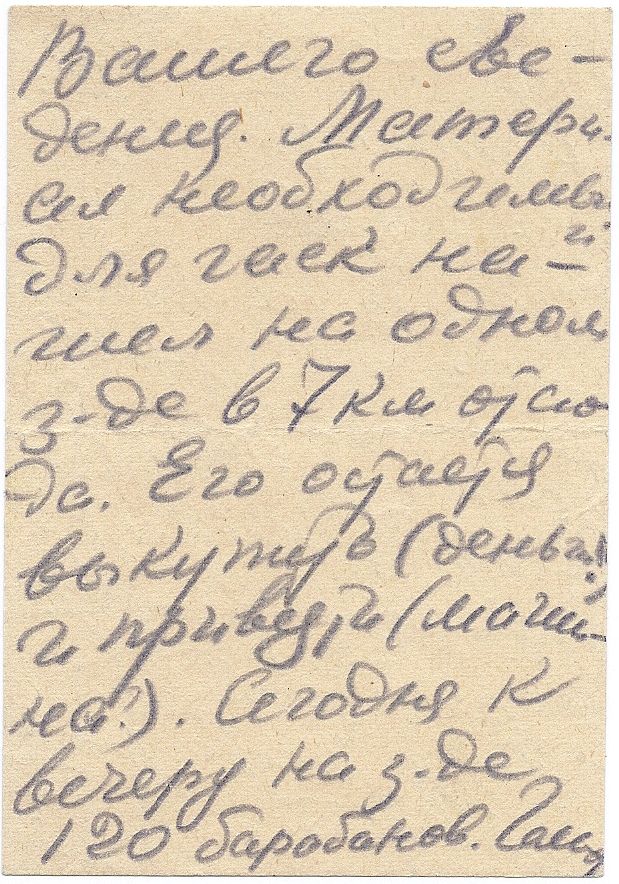 Вашего све-
дения. Матери-
ал необходимый
для гаек на-
шел на одном
з-де в 7 км отсю-
да. Его остается
выкупить (деньги!)
и привезти (маши-
на!). Сегодня к
вечеру на з-де
120 барабанов.